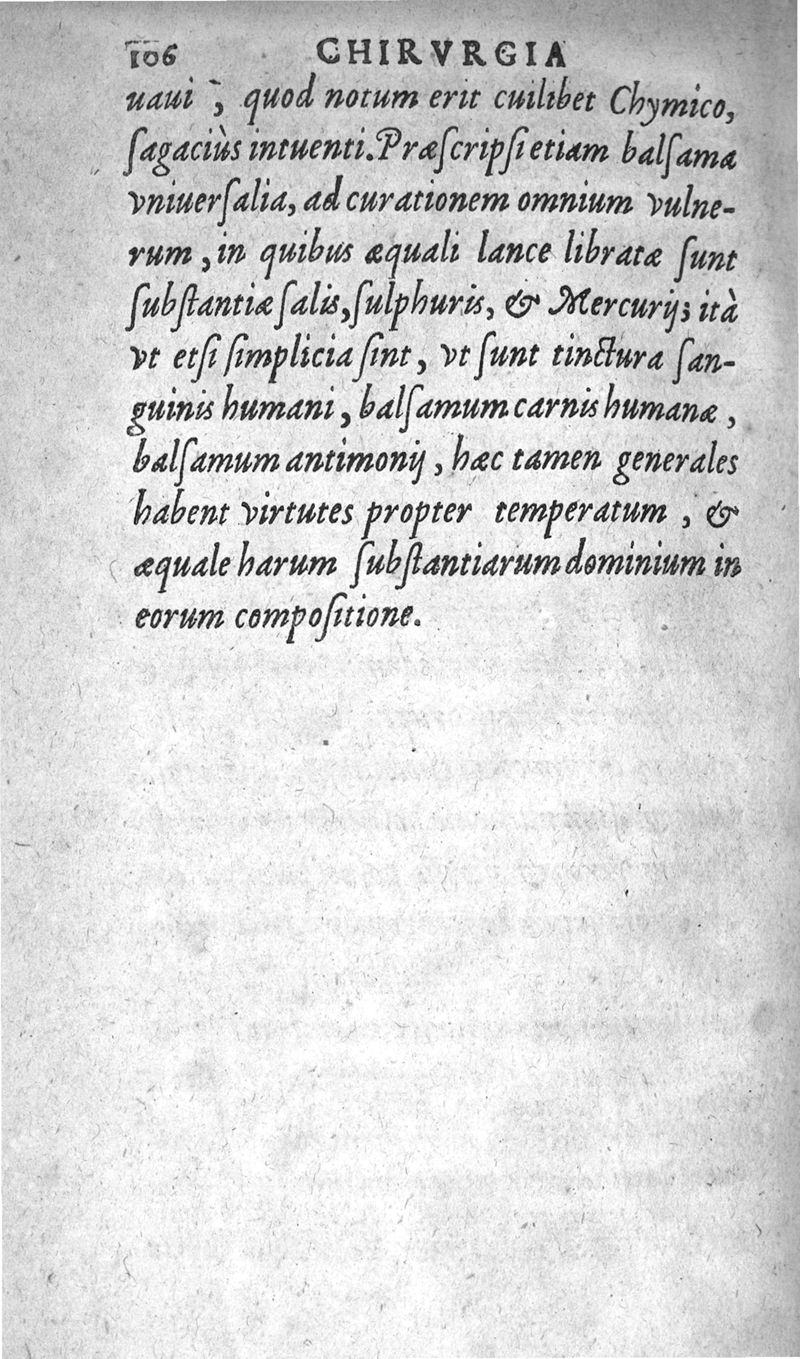 106 CHIRVRGIA
uaui, quod notum erit cuilibet Chymico,
ſagaciùs intuenti. Præſcripſi etiam balſama
vniuerſalia, ad curationem omnium vulne-
rum, in quibus æquali lance libratæ ſunt
ſubſtantiæ ſalis, ſulphuris, & Mercurij; ità
vt etſi ſimplicia ſint, vt ſunt tinctura ſan-
guinis humani, balſamum carnis humanæ,
balſamum antimonij, hæc tamen generales
habent virtutes propter temperatum, &
æquale harum ſubſtantiarum dominium in
eorum compoſitione.